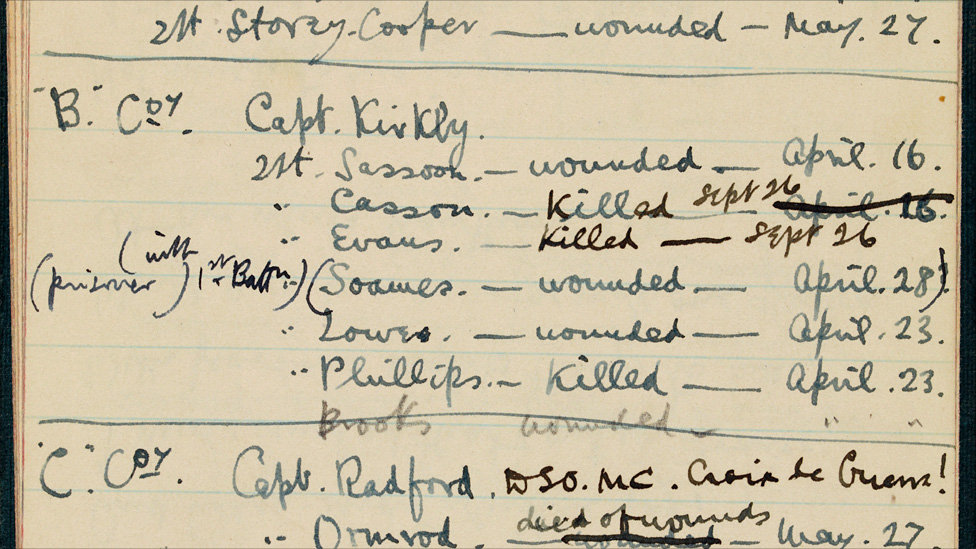 2Lt. Storey-Cooper — wounded — May. 27.
"B." Coy. Capt. Kirkby.
2Lt. Sassoon. — wounded — April. 16.
" Casson. — Killed — Sept 26 April. 16.
" Evans. — Killed — Sept 26
(prisoner) (with 1st Battn.) (Soames. — wounded — April. 28)!
" Lowe. — wounded — April. 23.
" Phillips. — Killed — April. 23.
Brooks wounded — " "
"C." Coy. Capt. Radford. DSO. MC. Croix de Guerre!
" Ormrod. — died of wounds wounded — May. 27.